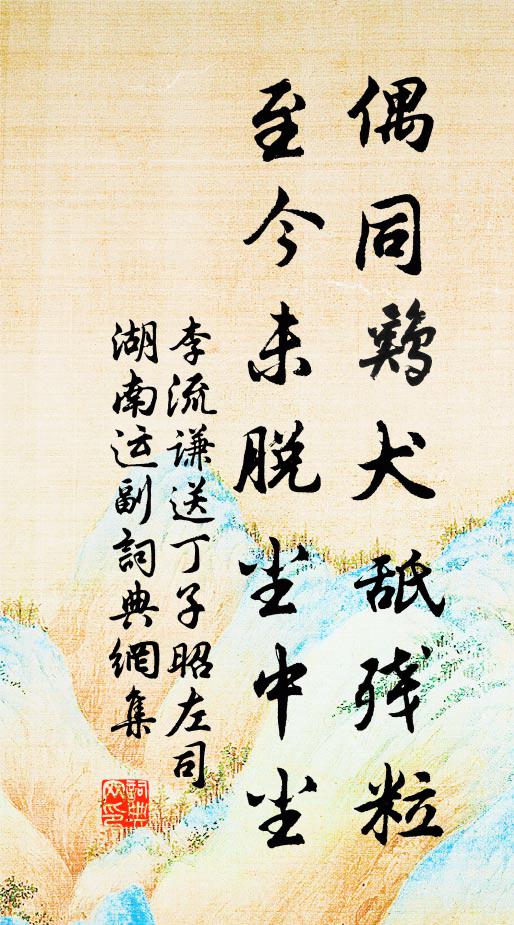 偶同鷄犬舐残粒
至今未脱尘中尘
李流谦送丁子昭左司
湖南运副詞典網集
詞典